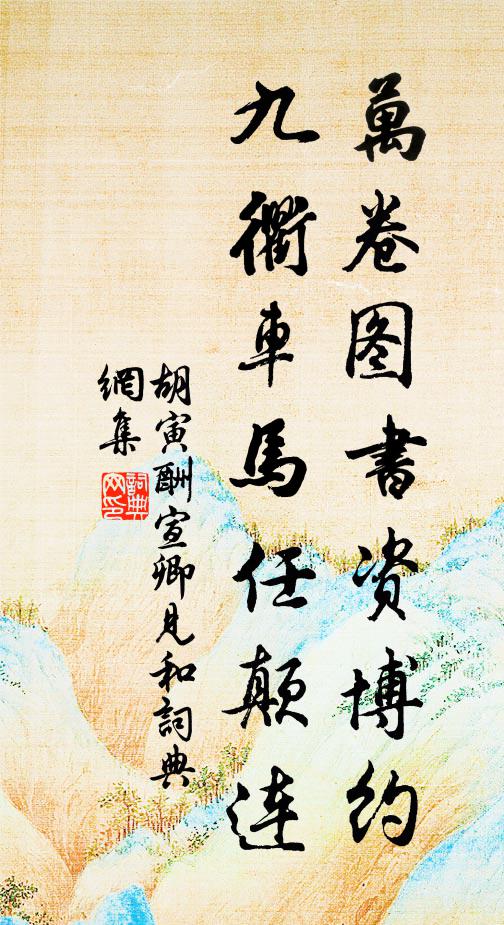 萬卷图書资博约
九衢車馬任颠连
胡寅酬宣卿見和詞典
網集
詞典
网印